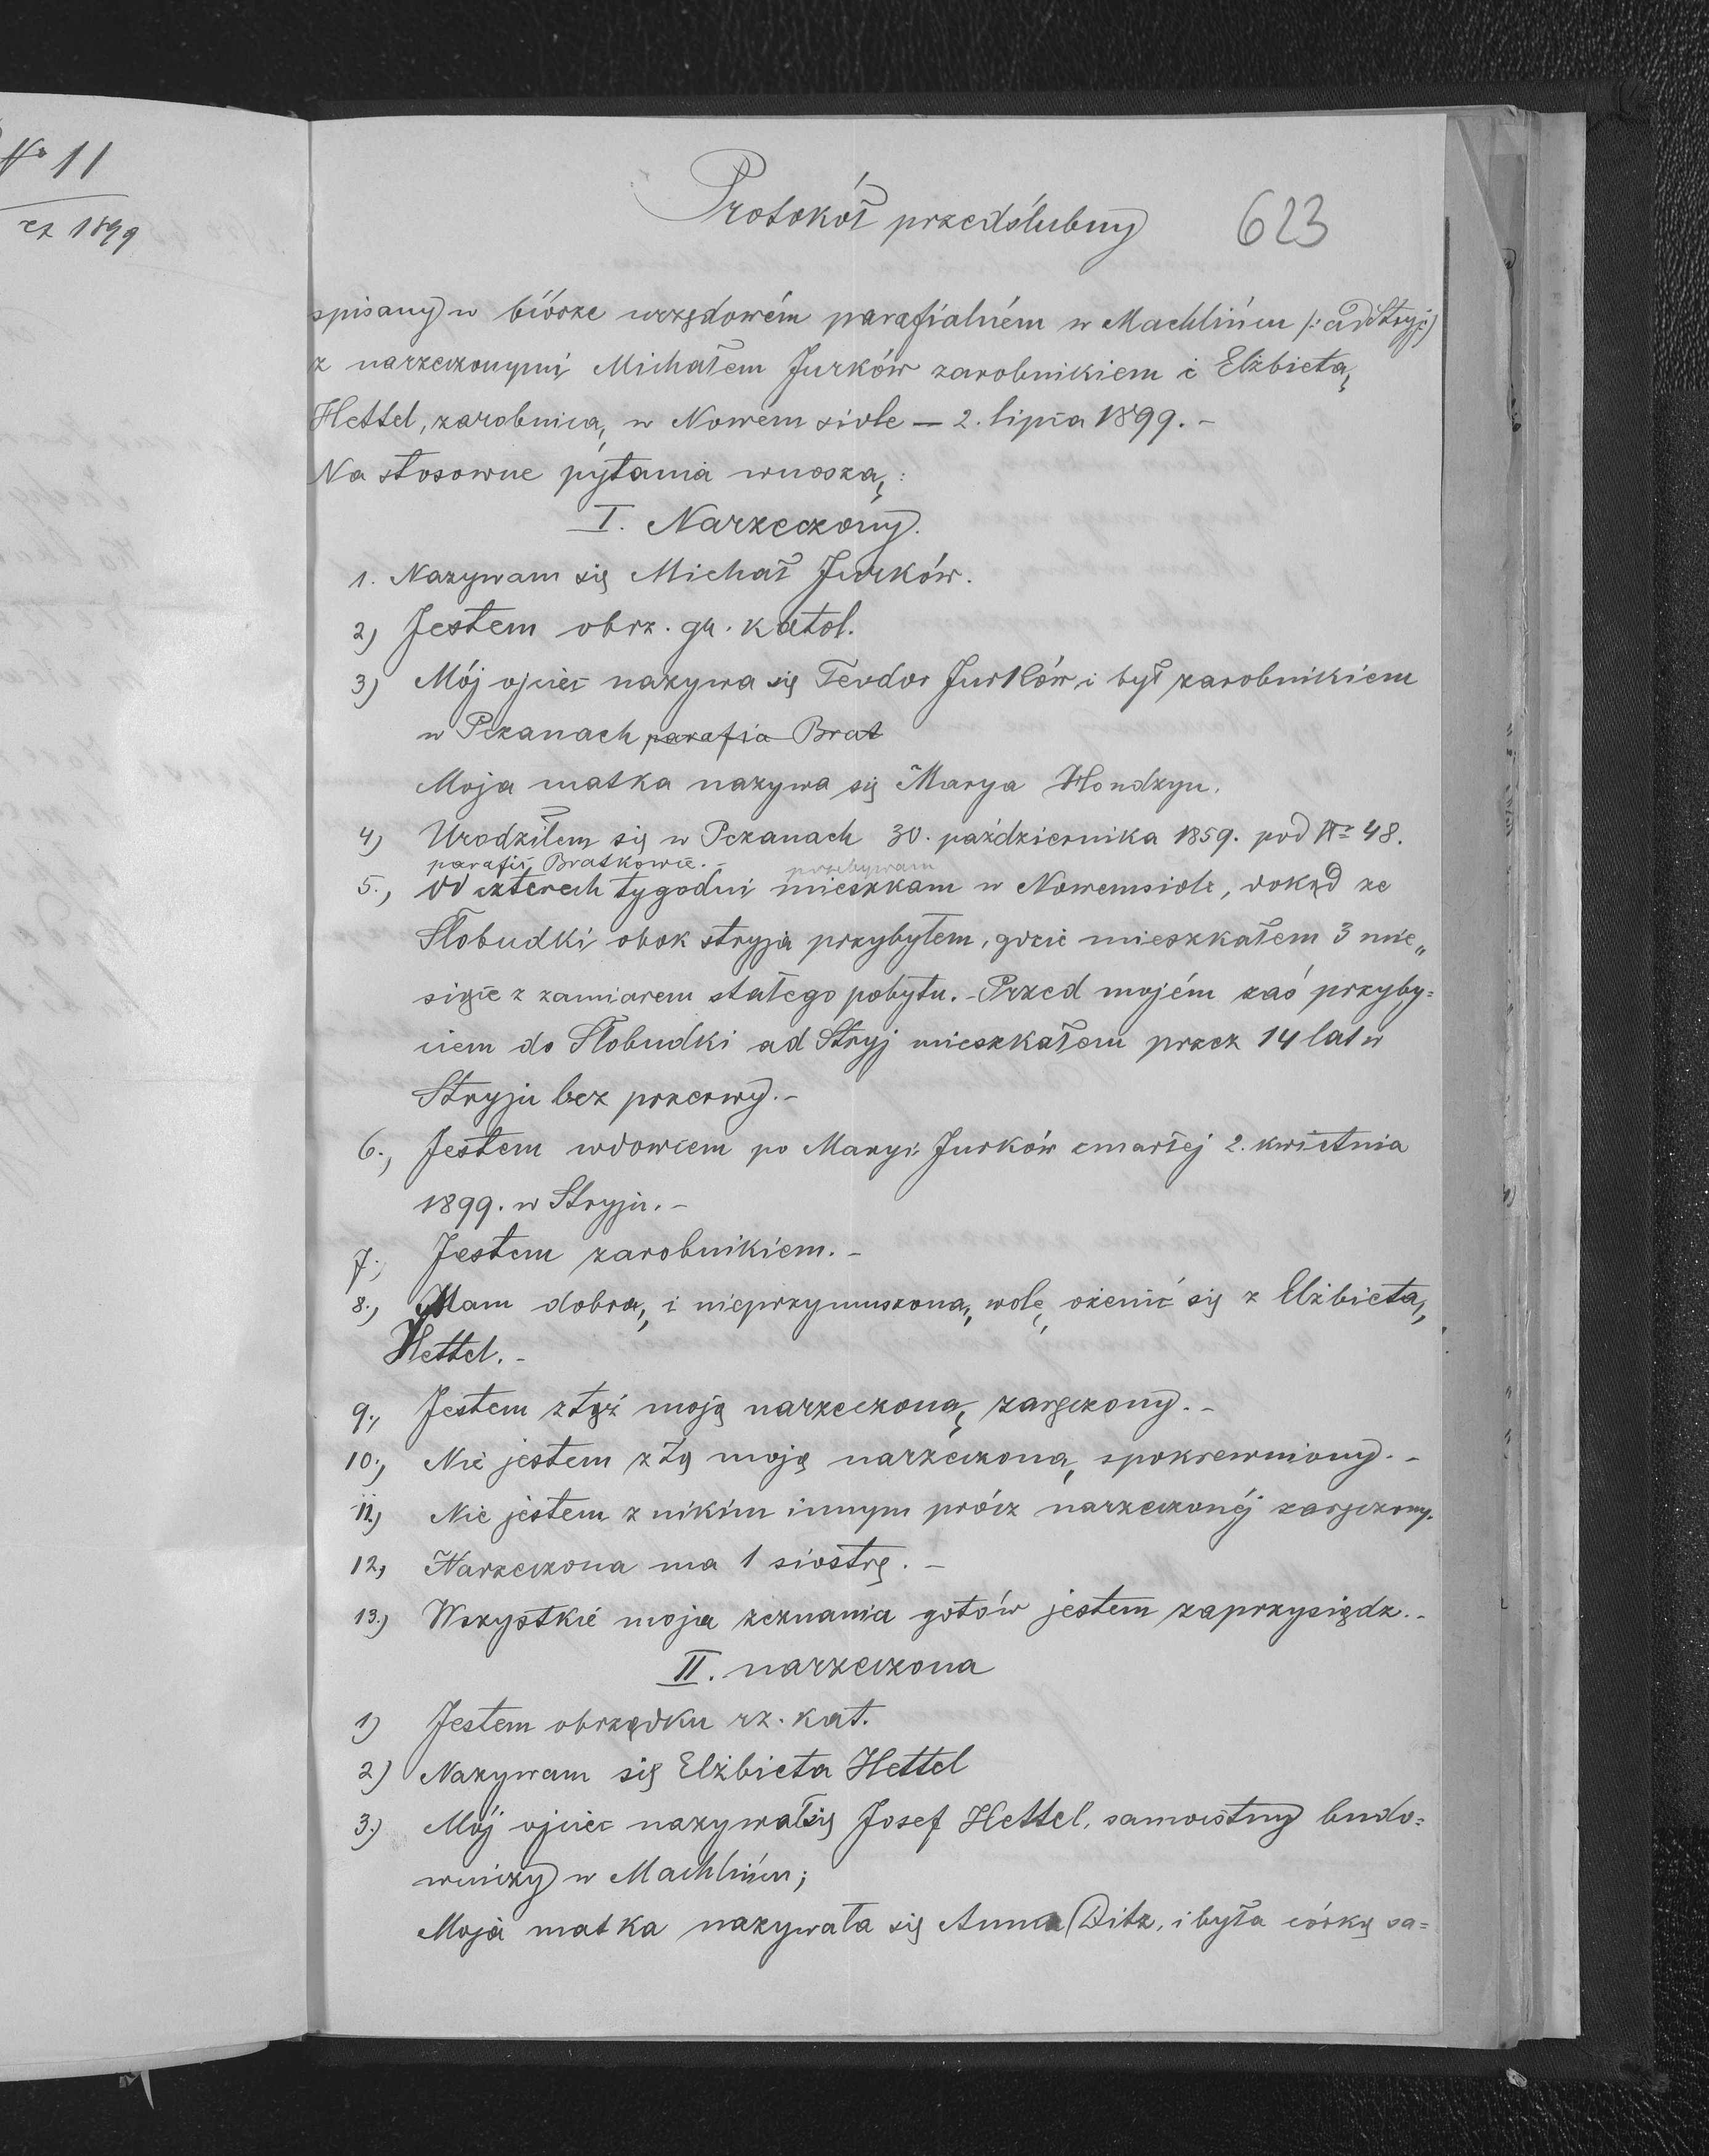 No 11
ex 1899
Protokół przedślubny
623
spisany w biórze urzędowém parafialném w Machlińcu (: ad Stryj :)
z narzeczonymi Michałem Jurków zarobnikiem i Elżbietą
Hettel, zarobnicą, w Nowem siole — 2. lipca 1899. -
Na stosowne pytania wnoszą:
I. Narzeczony.
1. Nazywam się Michał Jurków.
2) Jestem obrz. gr. katol.
3) Mój ojciec nazywa się Teodor Jurków i był zarobnikiem
w Pczanach parafia Brat
Moja matka nazywa się Marya Hondzyn.
4) Urodziłem się w Pczanach 30. października 1859. pod No 48.
parafii Bratkowce. - przebywam
5., Od czterech tygodni mieszkam w Nowemsiole, dokąd ze
Słobudki obok stryja przybyłem, gdzie mieszkałem 3 mie„
siące z zamiarem stałego pobytu. - Przed mojém zaś przyby=
ciem do Słobudki ad Stryj mieszkałem przez 14 lat w
Stryju bez przerwy. -
6., Jestem wdowcem po Maryi Jurków zmarłej 2. kwietnia
1899. w Stryju. -
7., Jestem zarobnikiem. -
8., Mam dobrą, i nieprzymuszoną, wolę, ożenić się z Elżbietą,
Hettel. -
9., Jestem z tąż moją narzeczoną, zaręczony. -
10., Nie jestem z tą moją narzeczoną, spokrewniony. -
11.) Nie jestem z nikim innym prócz narzeczonéj zaręczony.
12, Narzeczona ma 1 siostrę. -
13.) Wszystkie moja zeznania gotów jestem zaprzysiądz. -
II. narzeczona
1) Jestem obrządku rz. kat.
2) Nazywam się Elżbieta Hettel
3.) Mój ojciec nazywał się Josef Hettel, samoistny budo=
wniczy w Machlińcu;
Moja matka nazywała się Anna Ditz, i była córką sa=